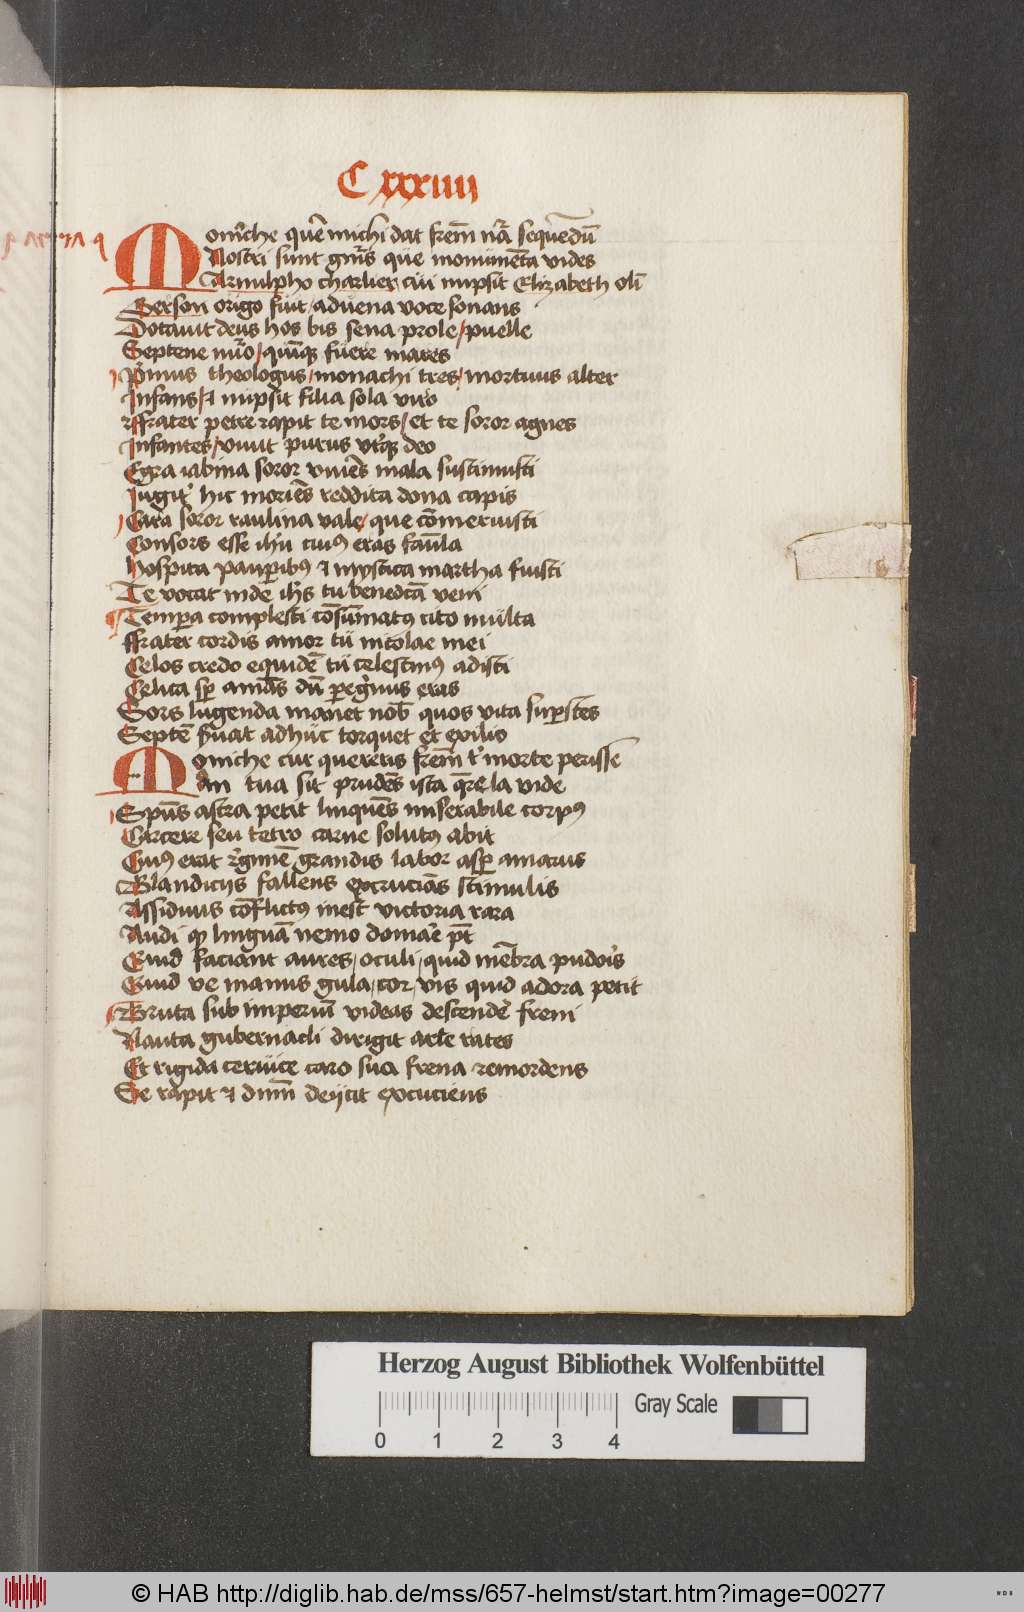 C xxxiiii
Moniche quē michi dat frēm nr̄a seqūedū
Nostri sunt gn̄is que monumēta vides
Arnulpho charlier cui nupsit Elizabeth oli̅
Gerson origo fuit / aduena voce sonans
Dotauit deus hos bis sena prole / puelle
Septene nu̅o / quinqꝫ fuere mares
Pⁱmus theologus / monachi tres / mortuus alter
Infans / ⁊ nupsit filia sola viro
ffrater petre rapit te mors / et te soror agnes
Infantes / viuit purus vterqꝫ deo
Egra iabina soror vniēs mala sustinuisti
Iugit᷑ hic moriēs reddita dona capis
Cara soror raulina vale / que cōmeruisti
Consors esse ihū cuiꝰ eras famla
Hospita pauꝑibꝰ ⁊ mystica martha fuisti
Te vocat inde ih̄s tu benedcā veni
Tempora complesti cōsūmatꝰ cito multa
ffrater cordis amor tu nicolae mei
Celos credo equidē tu celestinꝰ adisti
Celica sꝑ amās dū peregⁱnus eras
Sors lugenda manet nob̄ quos vita suꝑstes
Septē ẜuat adhuc torquet et exilio
Moniche cur quereris frēm t᷑ morte perisse
An tua sit prudēs ista q̄rela vide
Spūs astra petit linquēs miserabile corpꝰ
Carcere seu tetro carne solutꝰ abit
Cuiꝰ erat rēgimē grandis labor asꝑ amarus
Blandiciis fallens excrucians stimulis
Assiduus cōflictꝰ inest victoria rara
Audi qꝫ linguā nemo domare pt̄
Quid faciant aures / oculi / quid mēbra pudoris
Quid ve manus gula / cor / vis quid adora petit
Bruta sub imperiū videas descendē freni
Nauta gubernacli dirigit arte rates
Et rigida ceruice caro sua frena remordens
Se rapit ⁊ dnm̄ deijcit excuciens
Herzog August Bibliothek Wolfenbüttel
Gray Scale
0 1 2 3 4
© HAB http://diglib.hab.de/mss/657-helmst/start.htm?image=00277